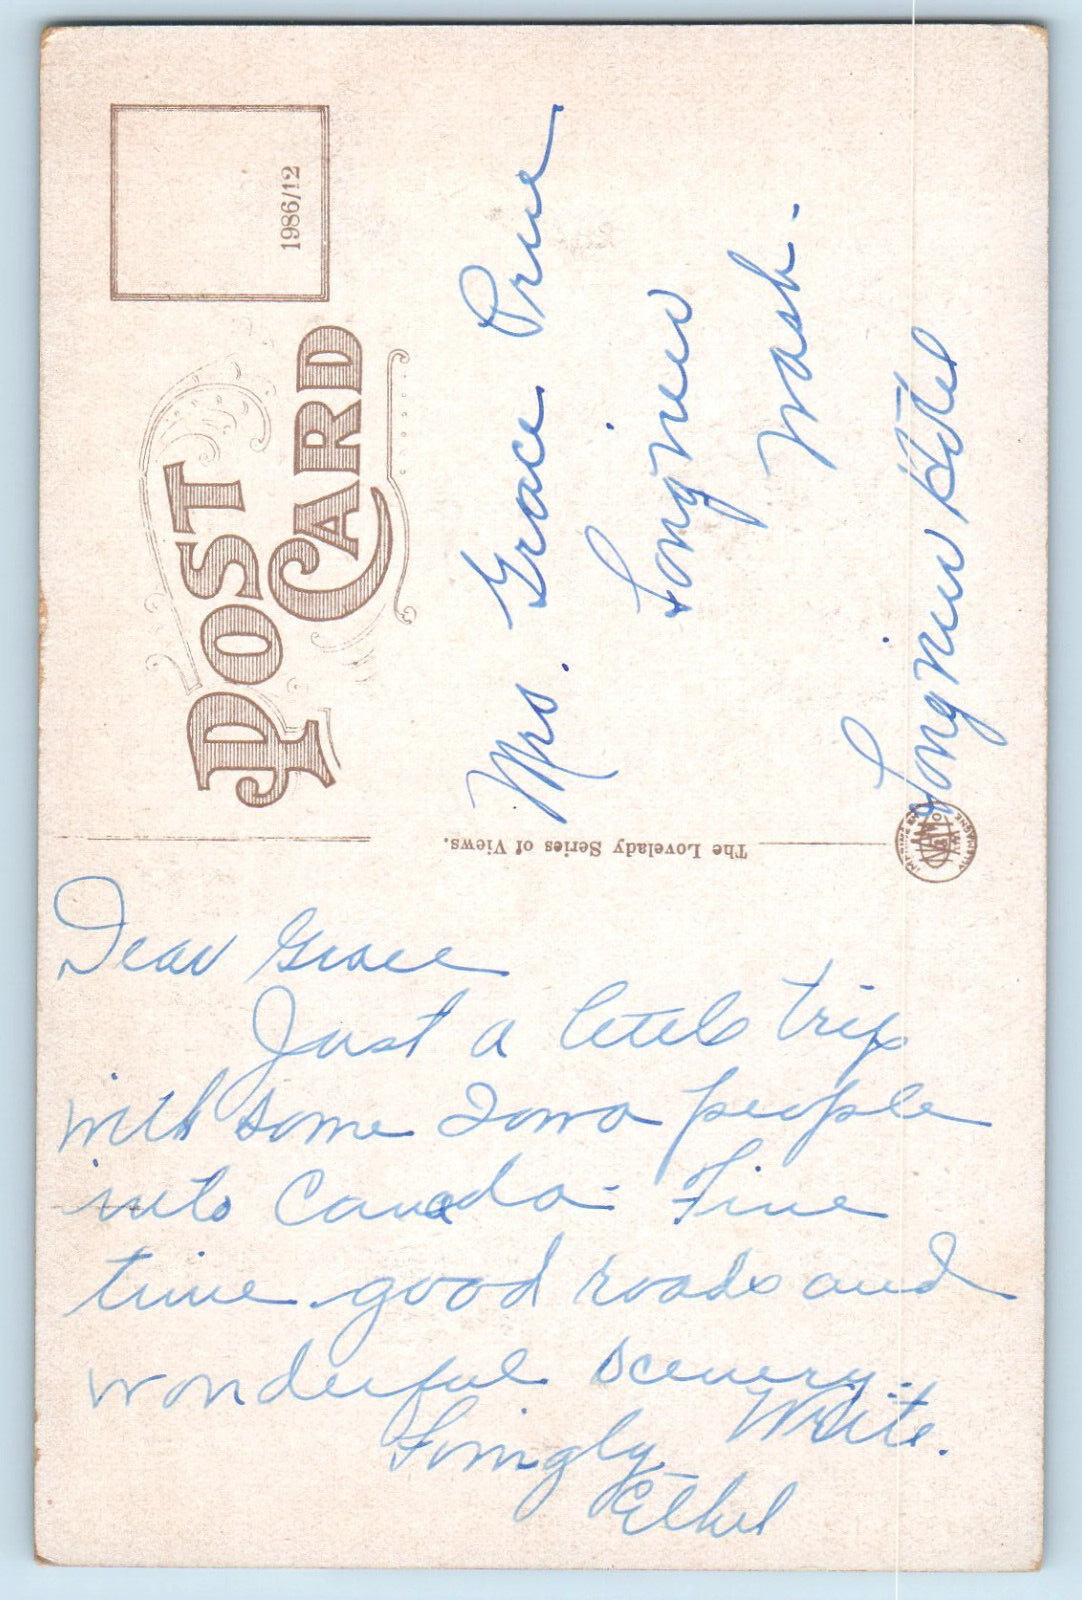 POST
CARD
1986/12
The Lovelady Series of Views.
Mrs. Grace Prue
Longview
Wash.
Longview Hotel
Dear Grace
Just a little trip
with some Iowa people
into Canada - Fine
time good roads and
wonderful scenery.
Write.
Lovingly
Ethel